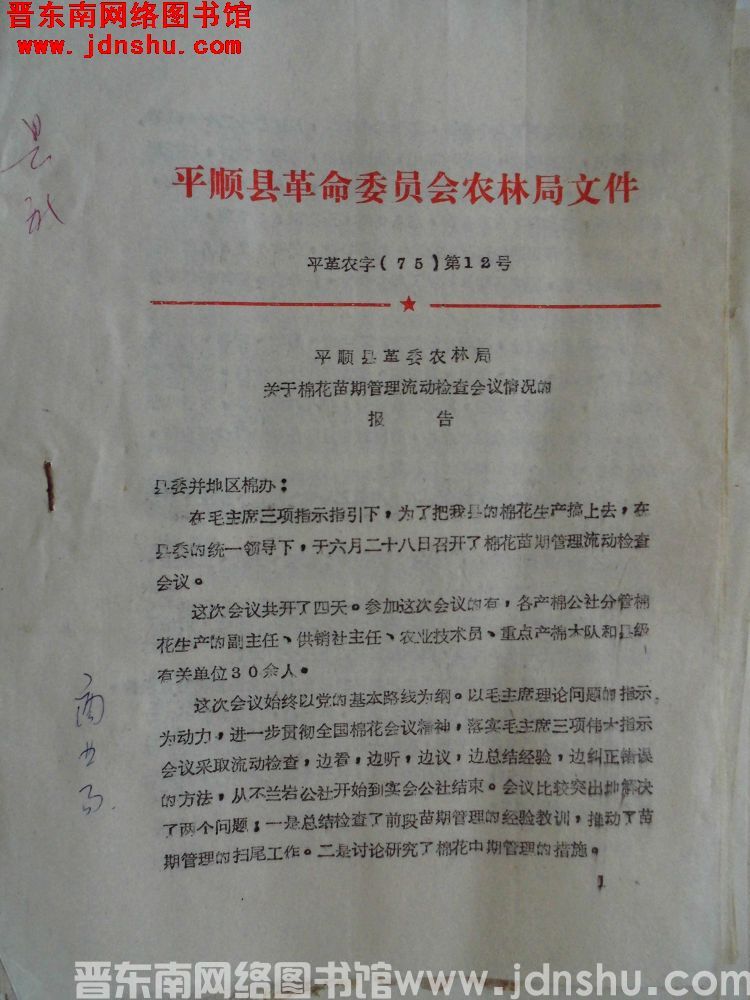 晋东南网络图书馆
www.jdnshu.com
平顺县革命委员会农林局文件
平革农字(75)第12号
平顺县革委农林局
关于棉花苗期管理流动检查会议情况的
报 告
县委并地区棉办：
在毛主席三项指示指引下，为了把我县的棉花生产搞上去，在
县委的统一领导下，于六月二十八日召开了棉花苗期管理流动检查
会议。
这次会议共开了四天。参加这次会议的有，各产棉公社分管棉
花生产的副主任、供销社主任、农业技术员、重点产棉大队和县级
有关单位30余人。
这次会议始终以党的基本路线为纲。以毛主席理论问题的指示
为动力，进一步贯彻全国棉花会议精神，落实毛主席三项伟大指示
会议采取流动检查，边看，边听，边议，边总结经验，边纠正错误
的方法，从不兰岩公社开始到实会公社结束。会议比较突出地解决
了两个问题；一是总结检查了前段苗期管理的经验教训，推动了苗
期管理的扫尾工作。二是讨论研究了棉花中期管理的措施。
1
商业局
晋东南网络图书馆www.jdnshu.com